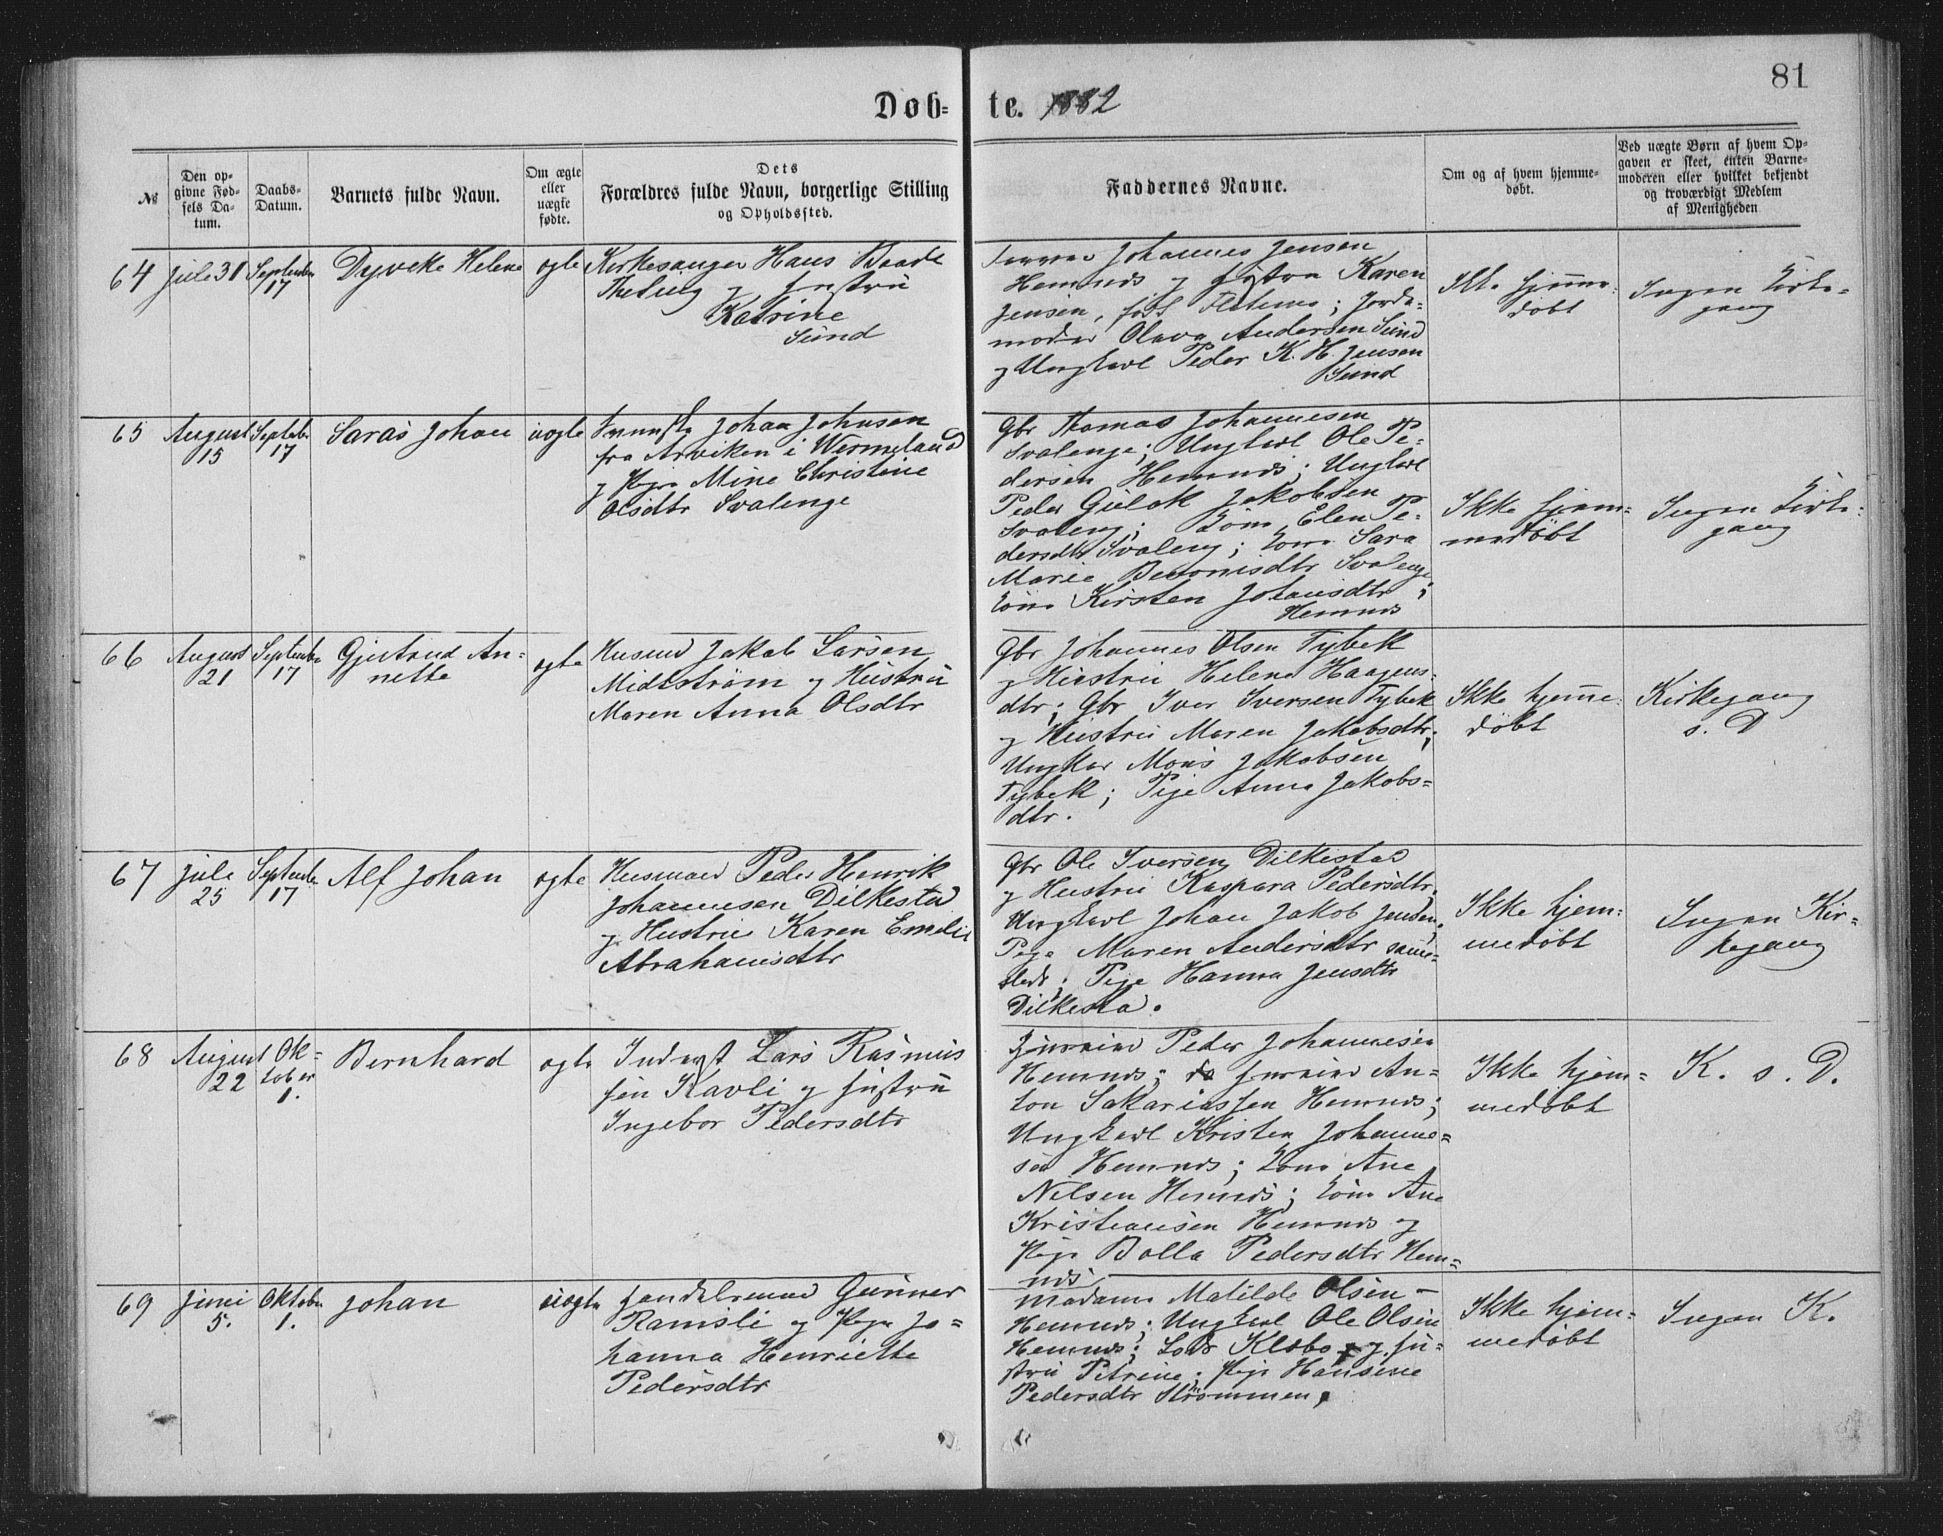 81
Døb- te. 1882
№
Den op-
givne Fød-
sels Da-
tum.
Daabs-
Datum.
Barnets fulde Navn.
Om ægte
eller
uægte
fødte.
Dets
Forældres fulde Navn, borgerlige Stilling
og Opholdssted.
Faddernes Navne.
Om og af hvem hjemme-
døbt.
Ved uægte Børn af hvem Op-
gaven er skeet, enten Barne-
moderen eller hvilket bekjendt
og troværdigt Medlem
af Menigheden
64
Juli 31
September
17
Dyveke Helene
ægte
Kirkesanger Hans Baade
og Hustru
Katrine
Sund
Johannes Jensen
Hemnes og Hustru Karen
Jensen, født ; Jorde-
moder Olava Andersen Sund
og Ungkarl Peder K. H. Jensen
Sund
Ikke hjemme-
døbt
Ingen Kirke-
gang
65
August
15
Septebr
17
Saras Johan
uægte
Johan Johnsen
fra Arviken i Wermeland
og Pige Mine Christine
Olsdtr Svalenge
Gbr Thomas Johannesen
Svalenge; Ungkarl Ole Pe-
dersen Hemnes; Ungkarl
Peder Gulak Jakobsen
Svaleng; Kone Elen Pe-
dersdtr Svaleng; Kone Sara
Marie Benonisdtr Svalenge
Kone Kirsten Johansdtr;
Hemnes
Ikke hjem-
medøbt
Ingen Kirke-
gang
66
August
21
September
17
Gjertrud An-
nette
ægte
Husmd Jakob Larsen
Midtstrøm og Hustru
Maren Anna Olsdtr
Gbr Johannes Olsen Tybek
og Hustru Helene Haagens-
dtr; Gbr Iver Iversen Tybek
og Hustru Maren Jakobsdtr;
Ungkar Mons Jakobsen
Tybek; Pige Anna Jakobs-
dtr.
Ikke hjemme-
døbt
Kirkegang
s. D
67
Juli
25
September
17
Alf Johan
ægte
Husmand Peder Henrik
Johannesen Dilkestad
og Hustru Karen Emelie
Abrahamsdtr
Gbr Ole Iversen Dilkestad
og Hustru Kaspara Pedersdtr;
Ungkarl Johan Jakob Jensen,
Pige Maren Andersdtr samme-
steds; Pige Hanna Jensdtr
Dilkesta.
Ikke hjem-
medøbt
Ingen Kir-
kegang
68
August
22
Ok-
tober
1.
Bernhard
ægte
Inderst Lars Rasmus
sen Ravli og Hustru
Ingebor Pedersdtr
Peder Johannesen
Hemnes; An-
ton Sakariassen Hemnes;
Ungkarl Kristen Johanne-
sen Hemnes; Kone Ane
Nilsen Hemnes; Kone Ane
Kristiansen Hemnes og
Pige Bolla Pedersdtr Hem-
nes
Ikke hjem-
medøbt
K. s. D.
69
Juni
5.
Oktober
1.
Johan
uægte
Handelsmand Gunner
Ramsli og Pige Jo-
hanna Henriette
Pedersdtr
Madame Matilde Olsen-
Hemnes; Ungkarl Ole Olsen
Hemnes; Lods Klæbo og Hu-
stru Petrine; Pige Hansine
Pedersdtr Strømmen,
Ikke hjem-
medøbt
Ingen K.